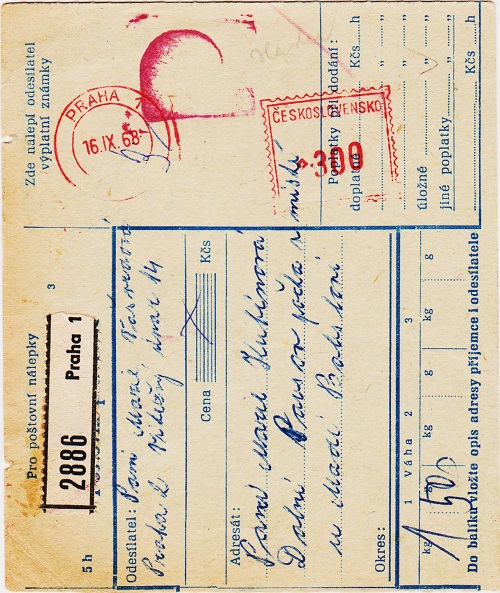 Pro poštovní nálepky
3
2886 Praha 1
5 h
Zde nalepí odesílatel
výplatní známky
PRAHA 1
16.IX.68
ČESKOSLOVENSKO
300
Odesílatel: Paní Marie
Praha 2 Vítězný únor 14
Cena Kčs
Adresát:
Paní Marie Kubínová
Dolní pošta v místě
u Mladé Boleslavi
Okres:
Poplatky při dodání:
doplatné Kčs h
" "
" "
úložné " "
jiné poplatky " "
Kčs h
1 Váha 2
3
kg g
kg g
1 50
Do balíku vložte opis adresy příjemce i odesílatele